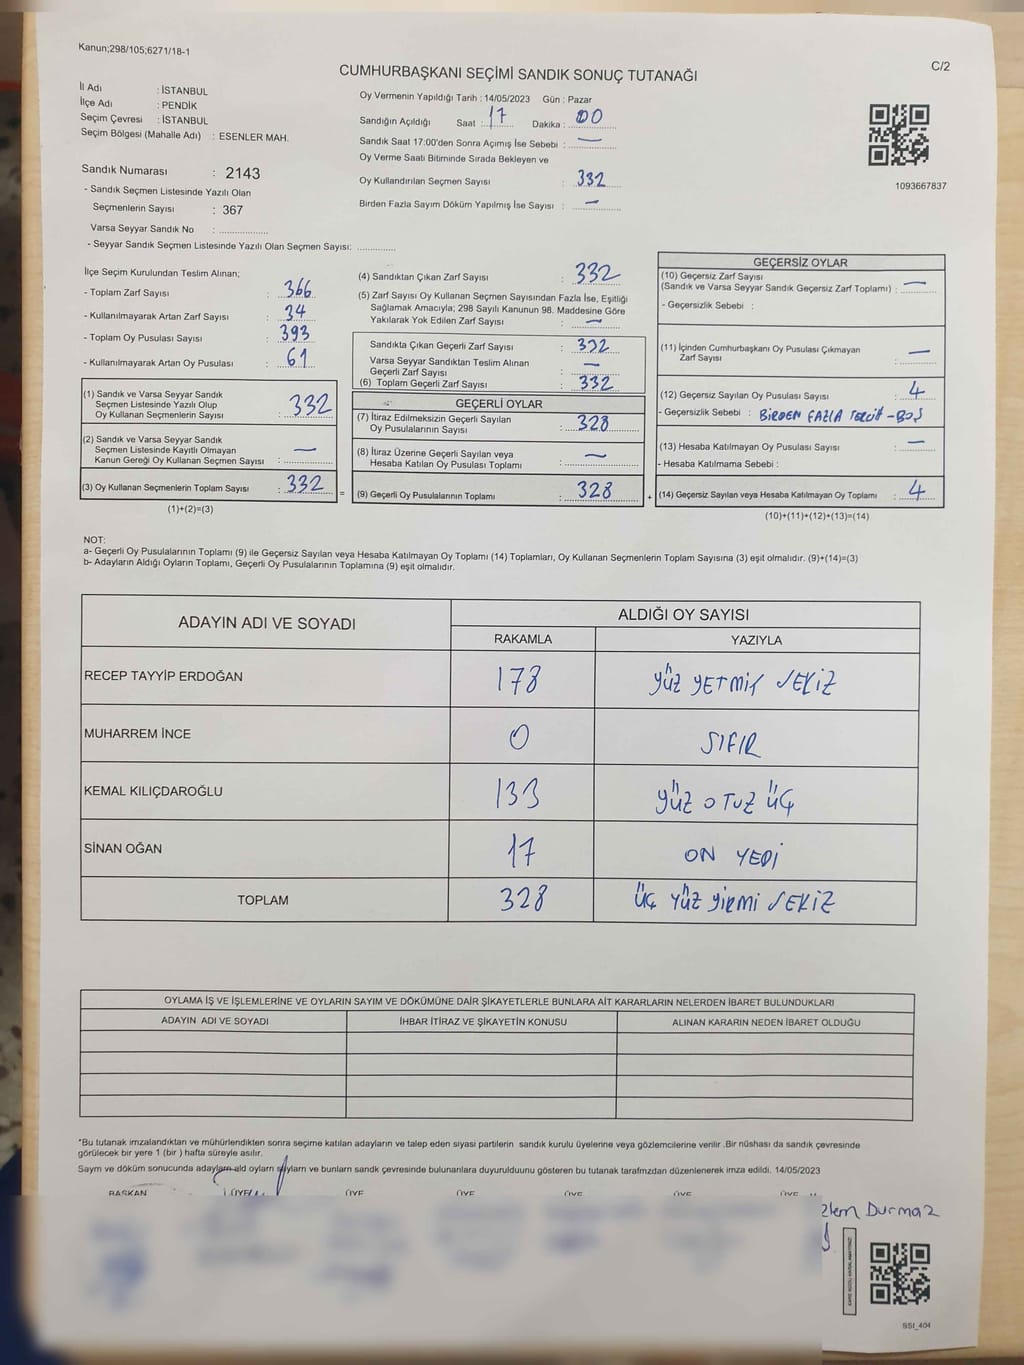 Kanun;298/105;6271/18-1
C/2
CUMHURBAŞKANI SEÇİMİ SANDIK SONUÇ TUTANAĞI
İl Adı : İSTANBUL
İlçe Adı : PENDİK
Seçim Çevresi : İSTANBUL
Seçim Bölgesi (Mahalle Adı) : ESENLER MAH.
Sandık Numarası : 2143
- Sandık Seçmen Listesinde Yazılı Olan
Seçmenlerin Sayısı : 367
Varsa Seyyar Sandık No : ....................
- Seyyar Sandık Seçmen Listesinde Yazılı Olan Seçmen Sayısı: ...............
Oy Vermenin Yapıldığı Tarih : 14/05/2023 Gün : Pazar
Sandığın Açıldığı Saat : 17 Dakika : 00
Sandık Saat 17:00'den Sonra Açımış İse Sebebi : —
Oy Verme Saati Bitiminde Sırada Bekleyen ve
Oy Kullandırılan Seçmen Sayısı : 332
Birden Fazla Sayım Döküm Yapılmış İse Sayısı : —
1093667837
İlçe Seçim Kurulundan Teslim Alınan;
- Toplam Zarf Sayısı : 366
- Kullanılmayarak Artan Zarf Sayısı : 34
- Toplam Oy Pusulası Sayısı : 393
- Kullanılmayarak Artan Oy Pusulası : 61
(1) Sandık ve Varsa Seyyar Sandık
Seçmen Listesinde Yazılı Olup
Oy Kullanan Seçmenlerin Sayısı : 332
(2) Sandık ve Varsa Seyyar Sandık
Seçmen Listesinde Kayıtlı Olmayan
Kanun Gereği Oy Kullanan Seçmen Sayısı : —
(3) Oy Kullanan Seçmenlerin Toplam Sayısı : 332
(1)+(2)=(3)
=
(4) Sandıktan Çıkan Zarf Sayısı : 332
(5) Zarf Sayısı Oy Kullanan Seçmen Sayısından Fazla İse, Eşitliği
Sağlamak Amacıyla; 298 Sayılı Kanunun 98. Maddesine Göre
Yakılarak Yok Edilen Zarf Sayısı : —
Sandıkta Çıkan Geçerli Zarf Sayısı : 332
Varsa Seyyar Sandıktan Teslim Alınan
Geçerli Zarf Sayısı : —
(6) Toplam Geçerli Zarf Sayısı : 332
GEÇERLİ OYLAR
(7) İtiraz Edilmeksizin Geçerli Sayılan
Oy Pusulalarının Sayısı : 328
(8) İtiraz Üzerine Geçerli Sayılan veya
Hesaba Katılan Oy Pusulası Toplamı : —
(9) Geçerli Oy Pusulalarının Toplamı : 328
+
GEÇERSİZ OYLAR
(10) Geçersiz Zarf Sayısı
(Sandık ve Varsa Seyyar Sandık Geçersiz Zarf Toplamı) : —
- Geçersizlik Sebebi :
(11) İçinden Cumhurbaşkanı Oy Pusulası Çıkmayan
Zarf Sayısı : —
(12) Geçersiz Sayılan Oy Pusulası Sayısı : 4
- Geçersizlik Sebebi : BİRDEN FAZLA TERCİH - BOŞ
(13) Hesaba Katılmayan Oy Pusulası Sayısı : —
- Hesaba Katılmama Sebebi :
(14) Geçersiz Sayılan veya Hesaba Katılmayan Oy Toplamı : 4
(10)+(11)+(12)+(13)=(14)
NOT:
a- Geçerli Oy Pusulalarının Toplamı (9) ile Geçersiz Sayılan veya Hesaba Katılmayan Oy Toplamı (14) Toplamları, Oy Kullanan Seçmenlerin Toplam Sayısına (3) eşit olmalıdır. (9)+(14)=(3)
b- Adayların Aldığı Oyların Toplamı, Geçerli Oy Pusulalarının Toplamına (9) eşit olmalıdır.
ADAYIN ADI VE SOYADI
ALDIĞI OY SAYISI
RAKAMLA YAZIYLA
RECEP TAYYİP ERDOĞAN 178 YÜZ YETMİŞ SEKİZ
MUHARREM İNCE 0 SIFIR
KEMAL KILIÇDAROĞLU 133 YÜZ OTUZ ÜÇ
SİNAN OĞAN 17 ON YEDİ
TOPLAM 328 ÜÇ YÜZ YİRMİ SEKİZ
OYLAMA İŞ VE İŞLEMLERİNE VE OYLARIN SAYIM VE DÖKÜMÜNE DAİR ŞİKAYETLERLE BUNLARA AİT KARARLARIN NELERDEN İBARET BULUNDUKLARI
ADAYIN ADI VE SOYADI İHBAR İTİRAZ VE ŞİKAYETİN KONUSU ALINAN KARARIN NEDEN İBARET OLDUĞU
*Bu tutanak imzalandıktan ve mühürlendikten sonra seçime katılan adayların ve talep eden siyasi partilerin sandık kurulu üyelerine veya gözlemcilerine verilir .Bir nüshası da sandık çevresinde
görülecek bir yere 1 (bir ) hafta süreyle asılır.
Sayım ve döküm sonucunda adayların aldı oyların sayıları ve bunların sandık çevresinde bulunanlara duyurulduunu gösteren bu tutanak tarafımzdan düzenlenerek imza edildi. 14/05/2023
BAŞKAN ÜYE ÜYE ÜYE ÜYE ÜYE ÜYE
Durmaz
SSI_404